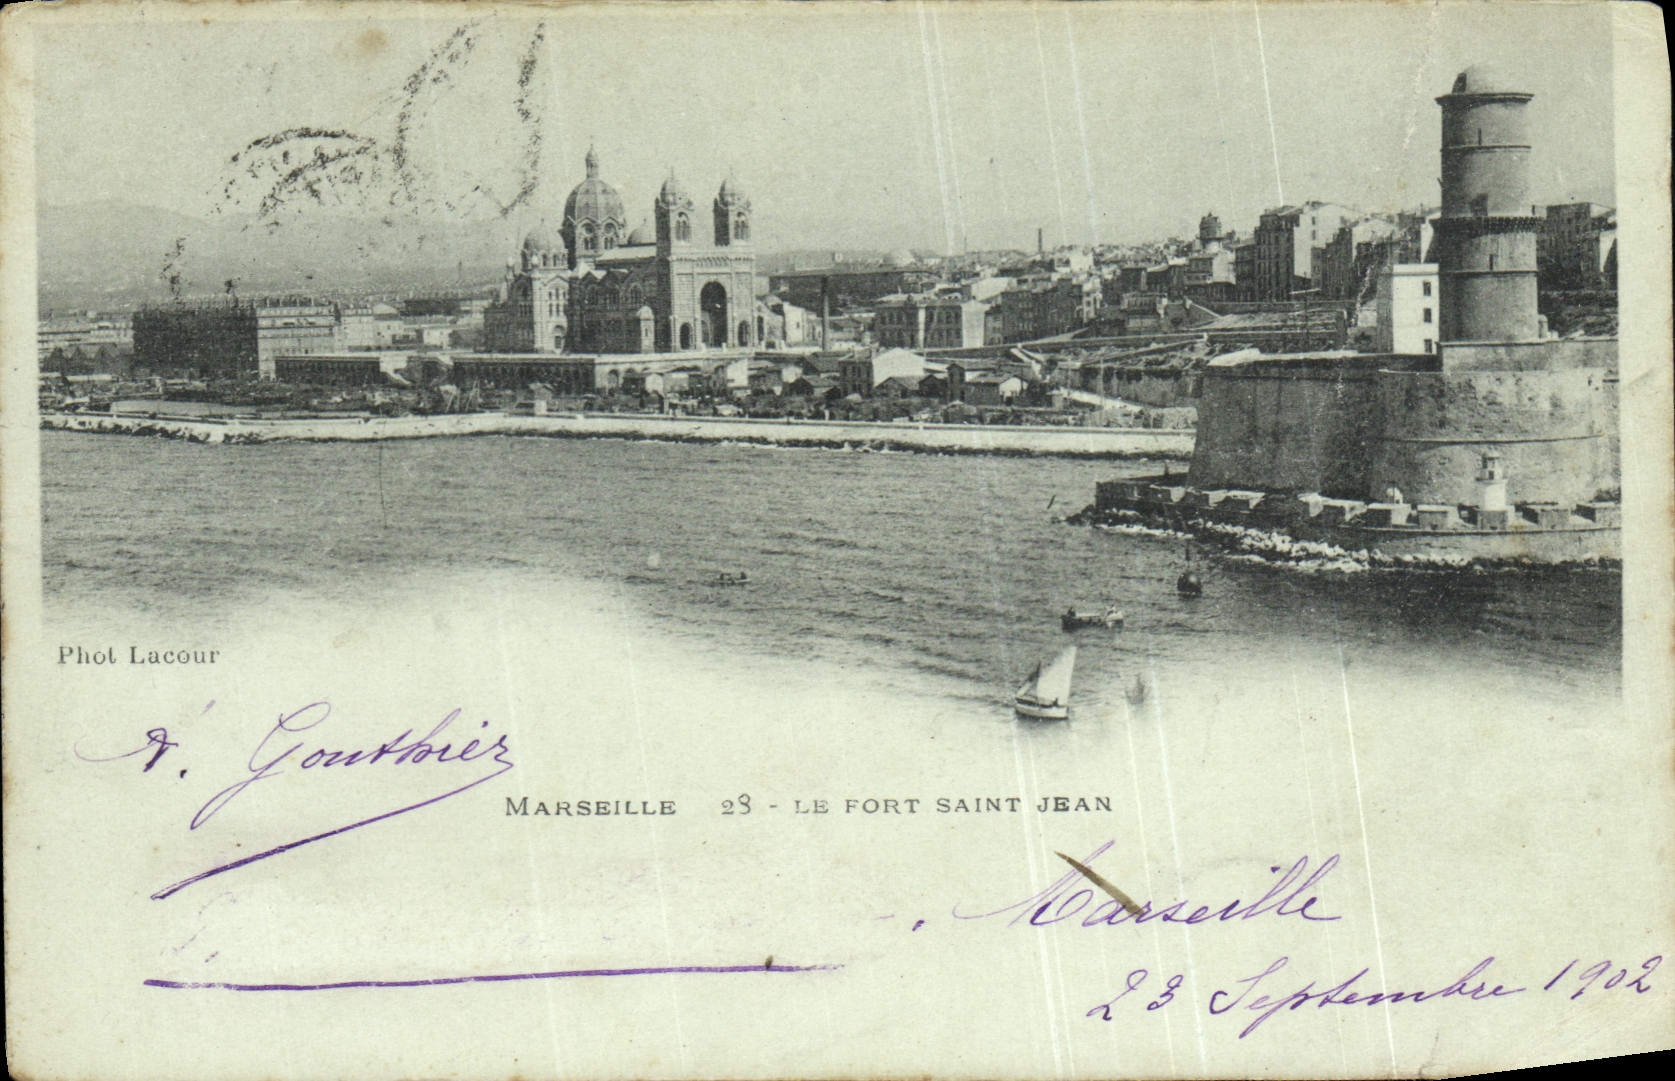 Phot Lacour
A. Gouthier
MARSEILLE 28 - LE FORT SAINT JEAN
Marseille
23 Septembre 1902